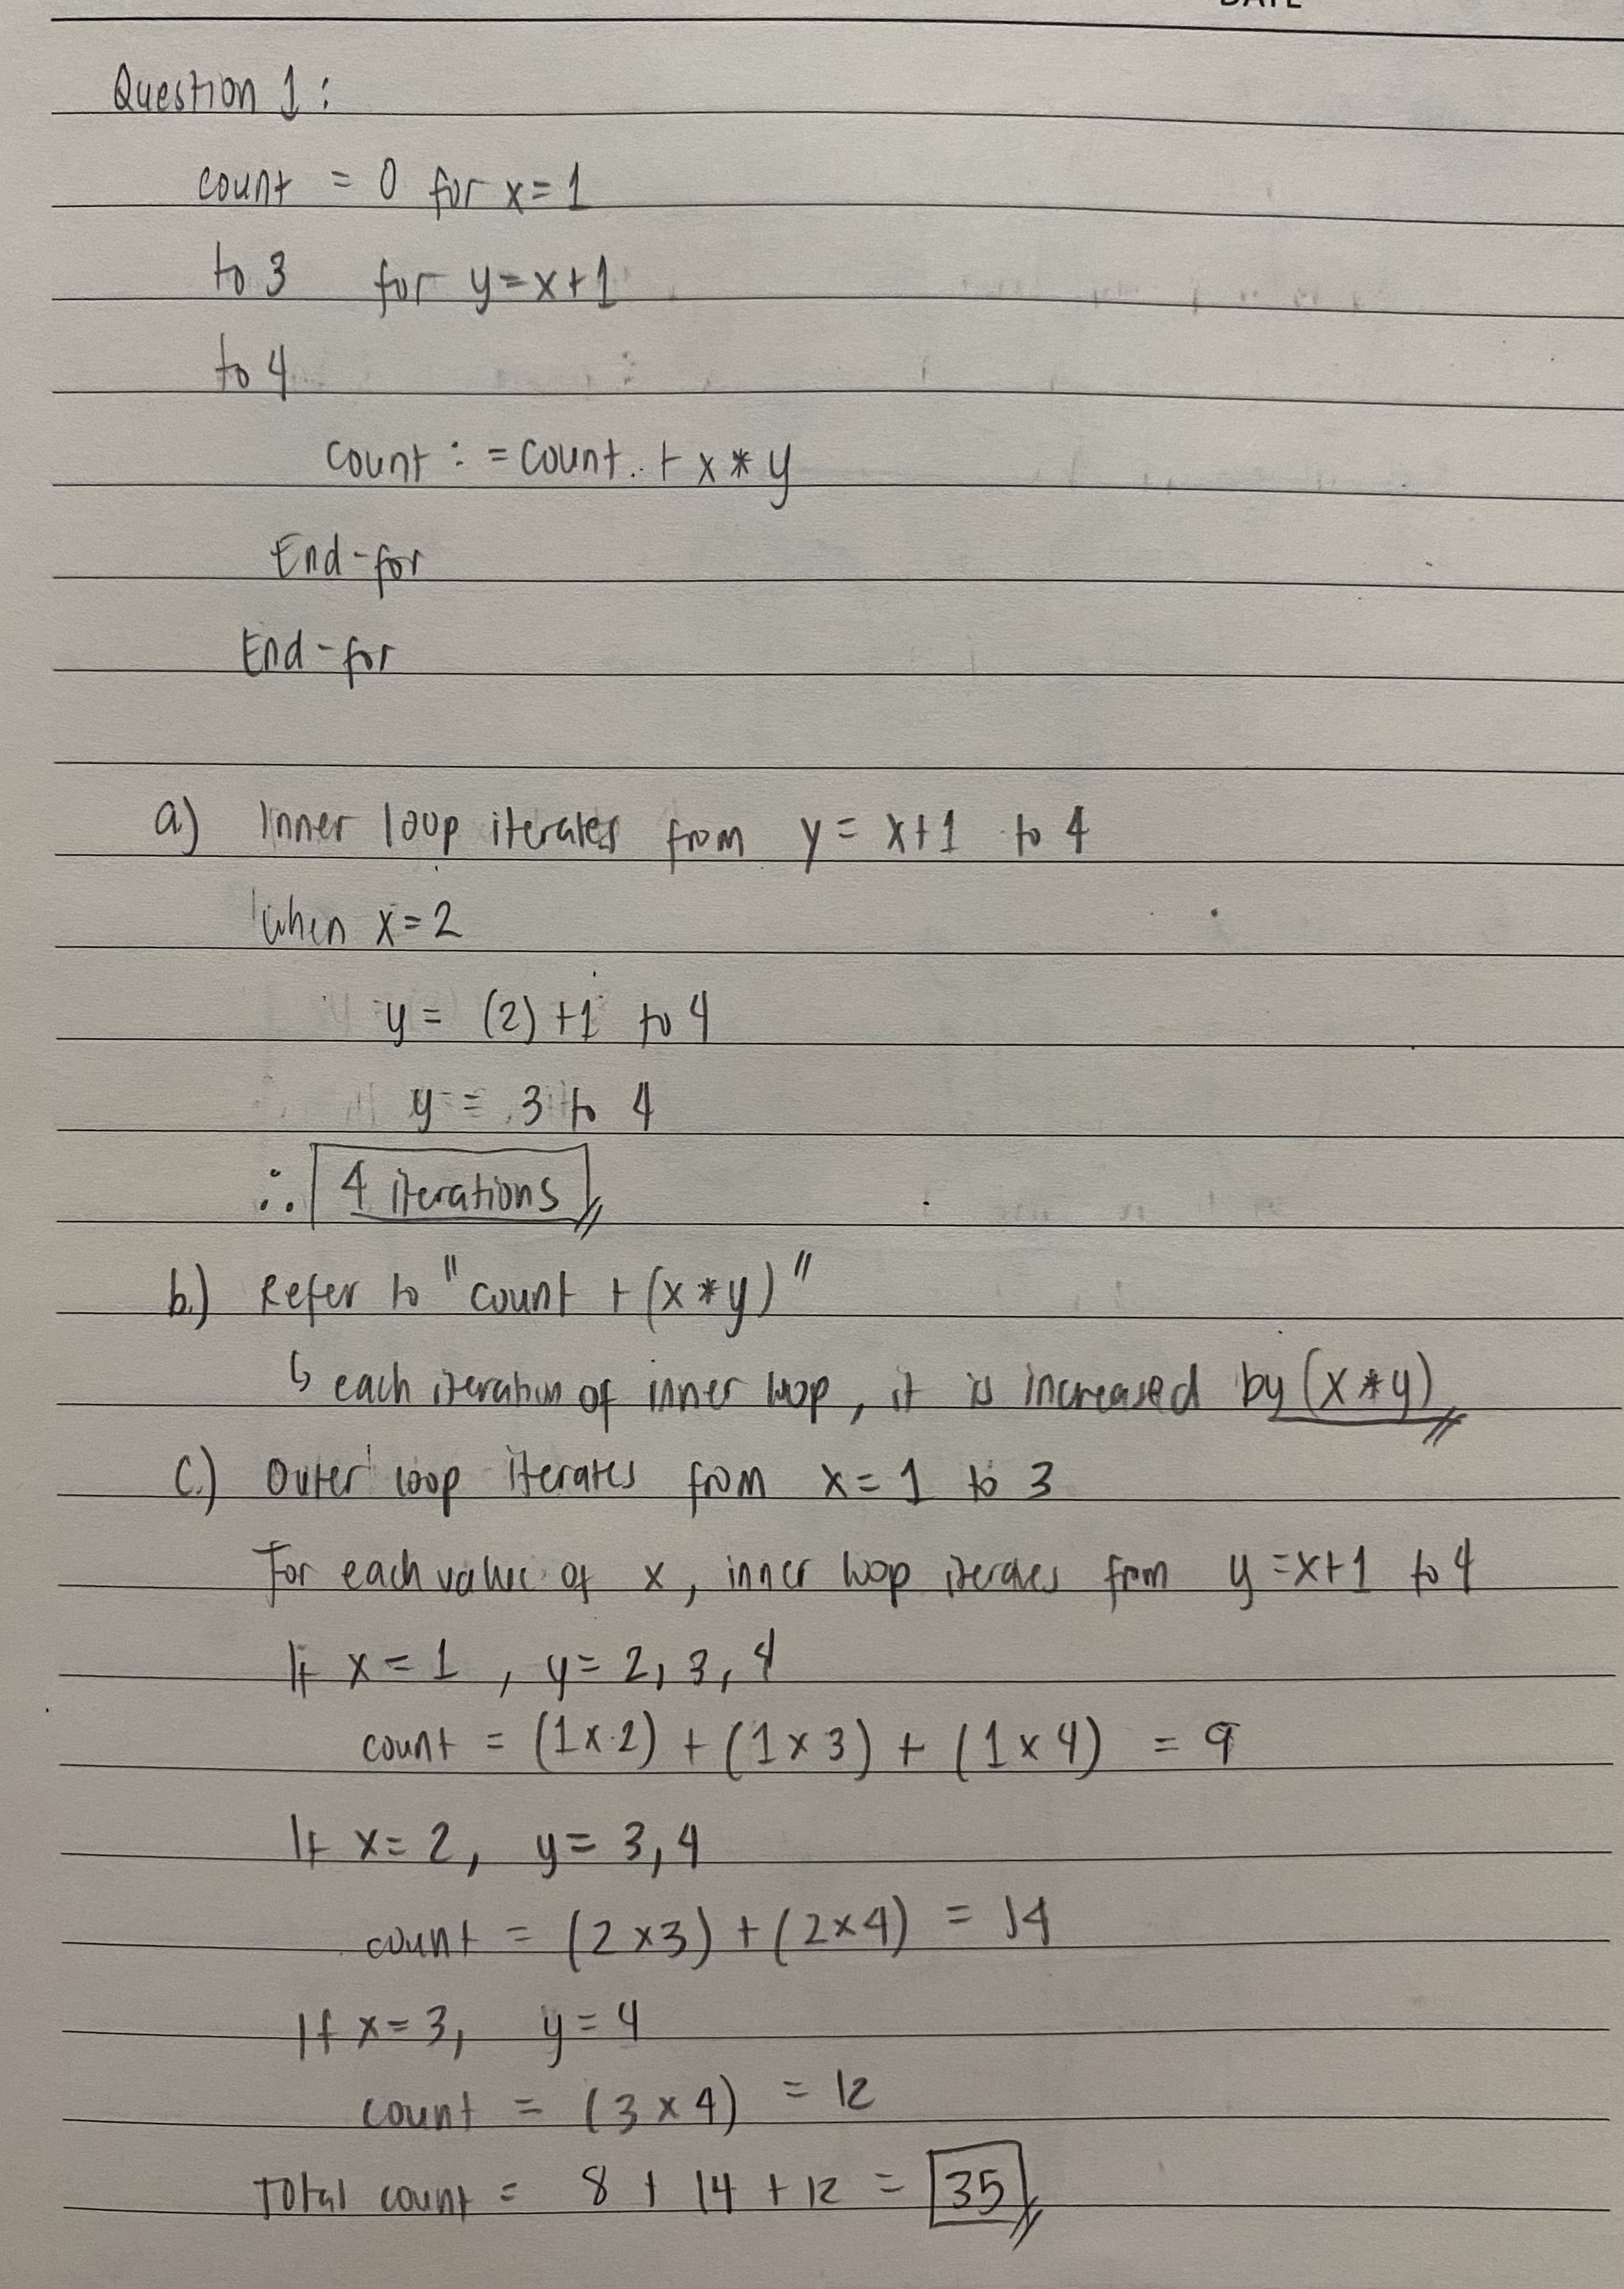 DATE
Question 1 :
count = 0 for x = 1
to 3 for y = x+1
to 4
count : = count + x * y
End-for
End-for
a) Inner loop iterates from y = x+1 to 4
When x = 2
y = (2) +1 to 4
y = 3 to 4
∴ 4 iterations
b.) Refer to "count + (x * y)"
↳ each iteration of inner loop, it is increased by (x * y)
c.) Outer loop iterates from x = 1 to 3
For each value of x, inner loop iterates from y = x+1 to 4
If x = 1, y = 2, 3, 4
count = (1 x 2) + (1 x 3) + (1 x 4) = 9
If x = 2, y = 3, 4
count = (2 x 3) + (2 x 4) = 14
If x = 3, y = 4
count = (3 x 4) = 12
Total count = 8 + 14 + 12 = 35